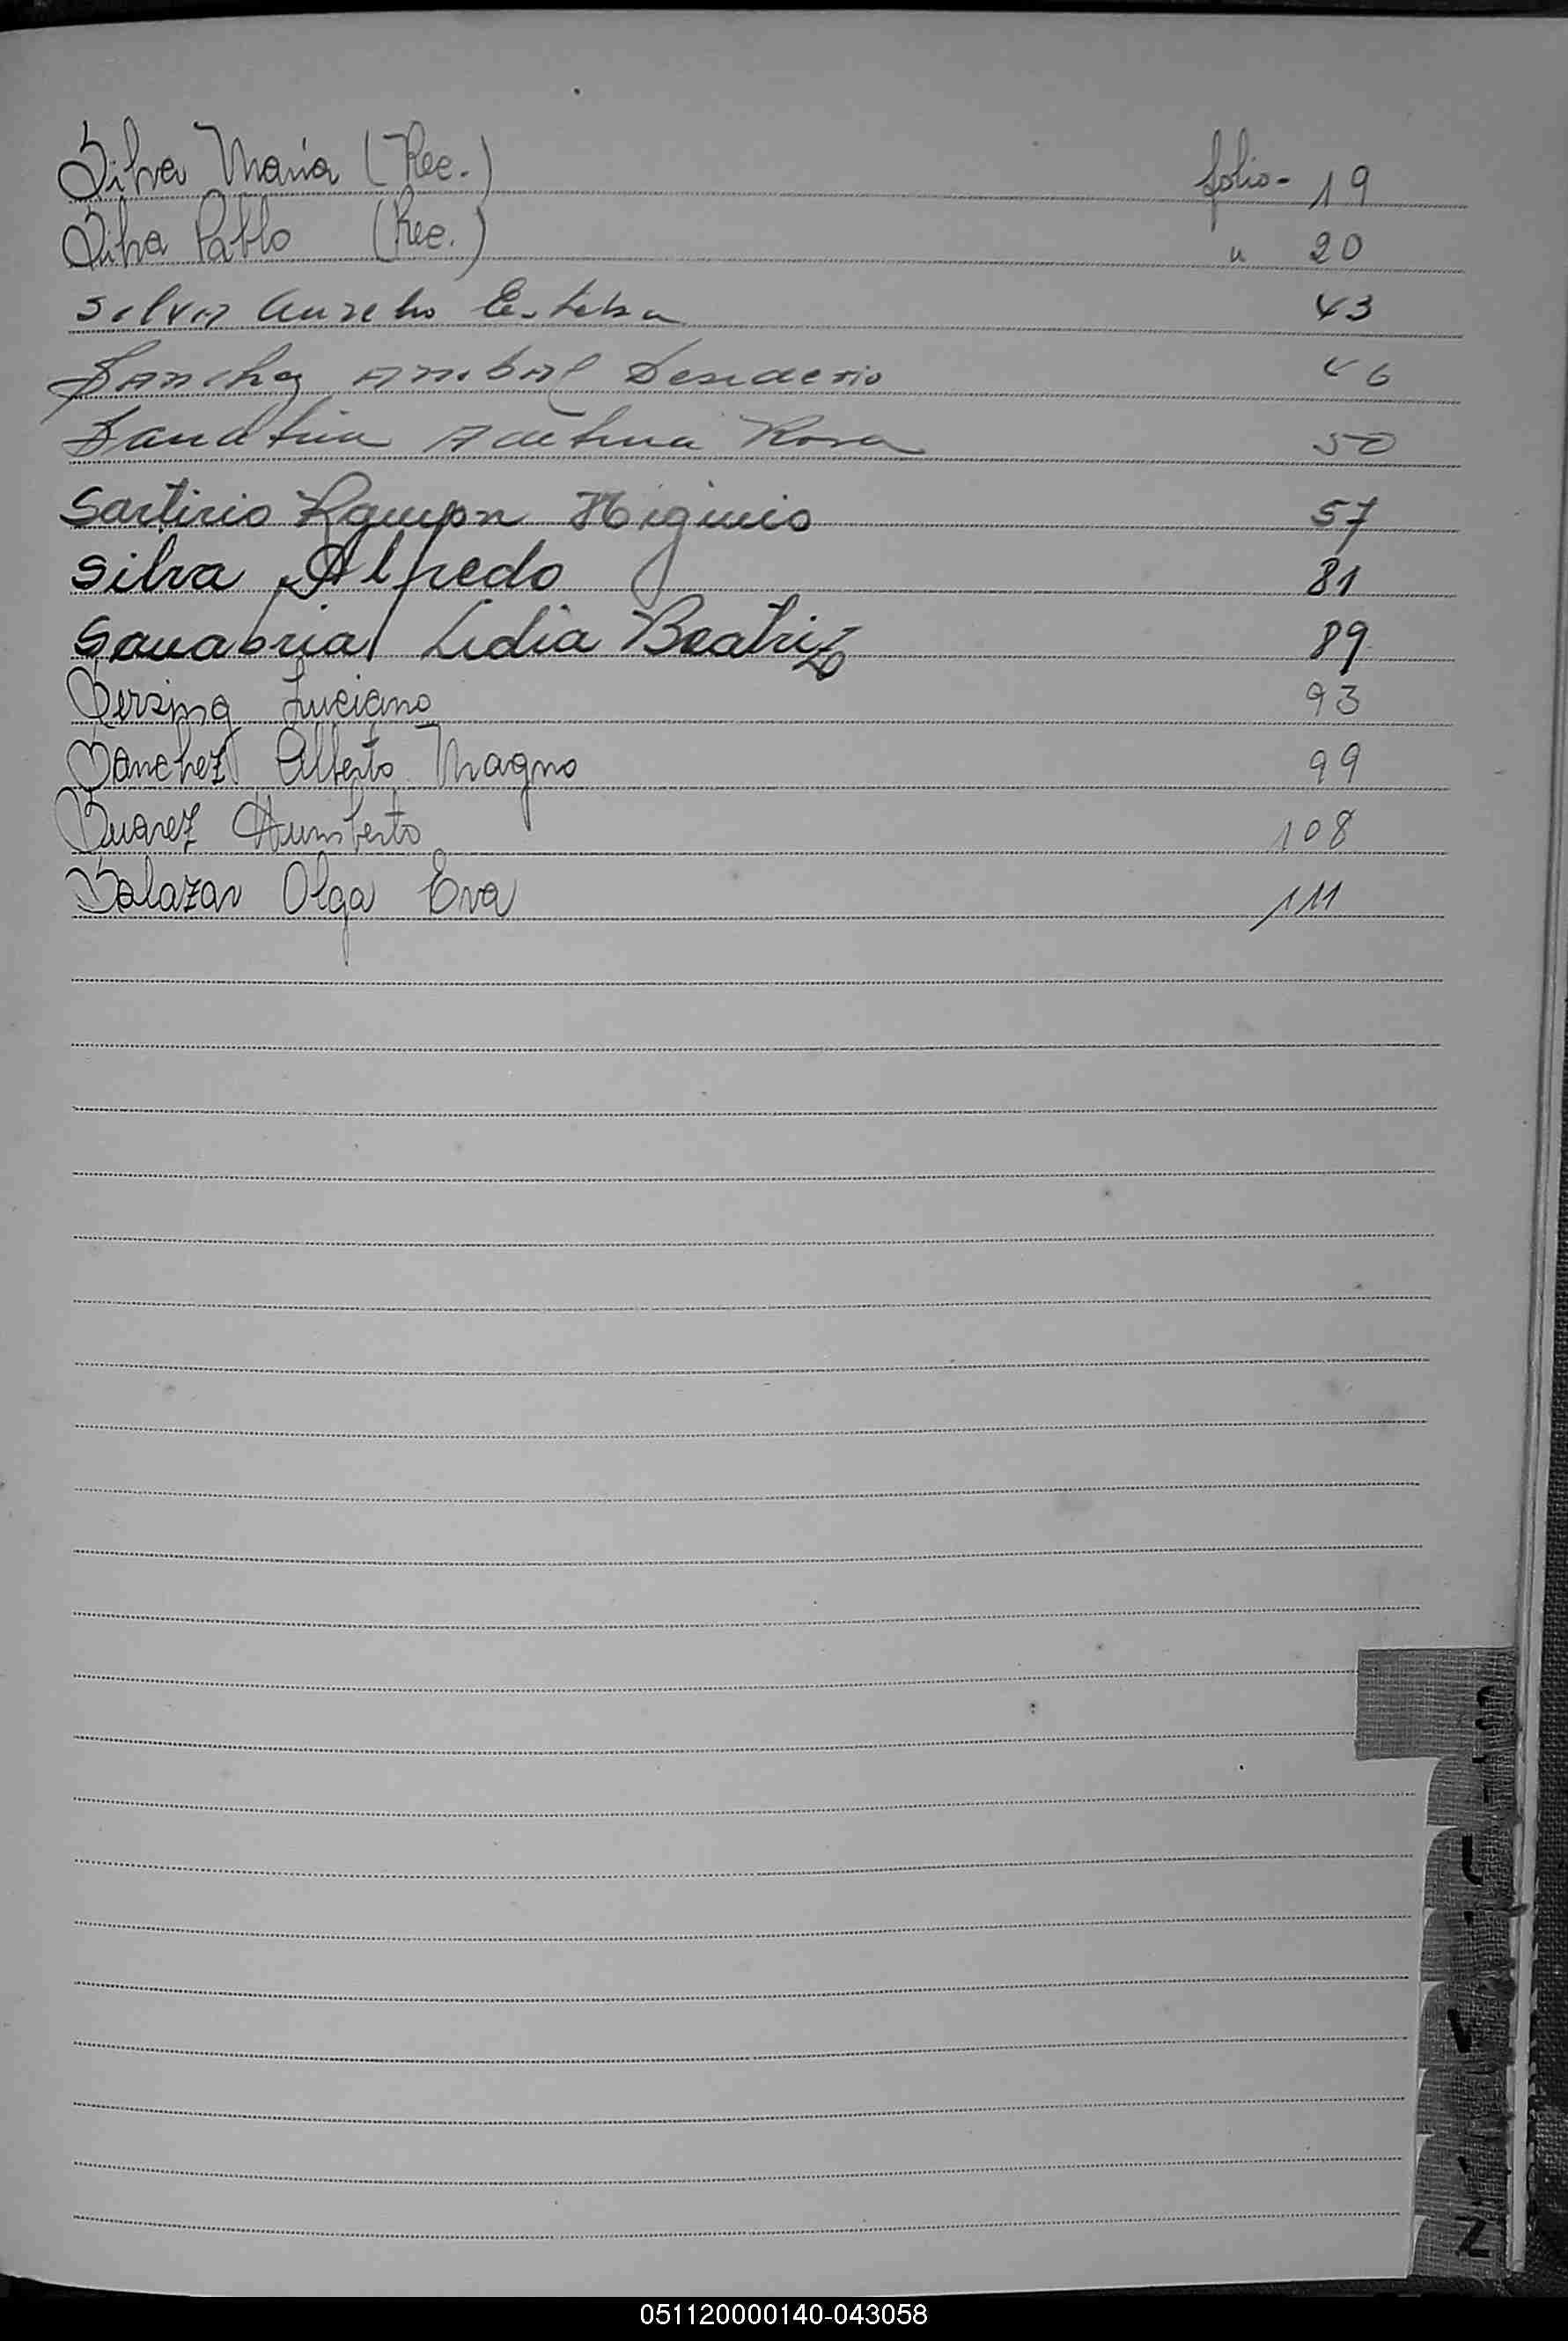 Silva Maria (Rec.) folio- 19
Silva Pablo (Rec.) " 20
Silva Aurelio Esteban 43
Sanchez Anibal Desiderio 46
Sanabria Adelina Rosa 50
Sartirio Ramon Higinio 57
Silva Alfredo 81
Sanabria Lidia Beatriz 89
Luciano 93
Sanchez Alberto Magno 99
Suarez Humberto 108
Salazar Olga Eva 111
Z
051120000140-043058